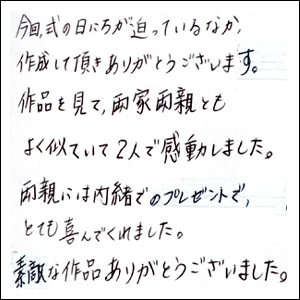 今回、式の日にちが迫っているなか、
作成して頂きありがとうございます。
作品を見て、両家両親とも
よく似ていて2人で感動しました。
両親には内緒でのプレゼントで、
とても喜んでくれました。
素敵な作品ありがとうございました。